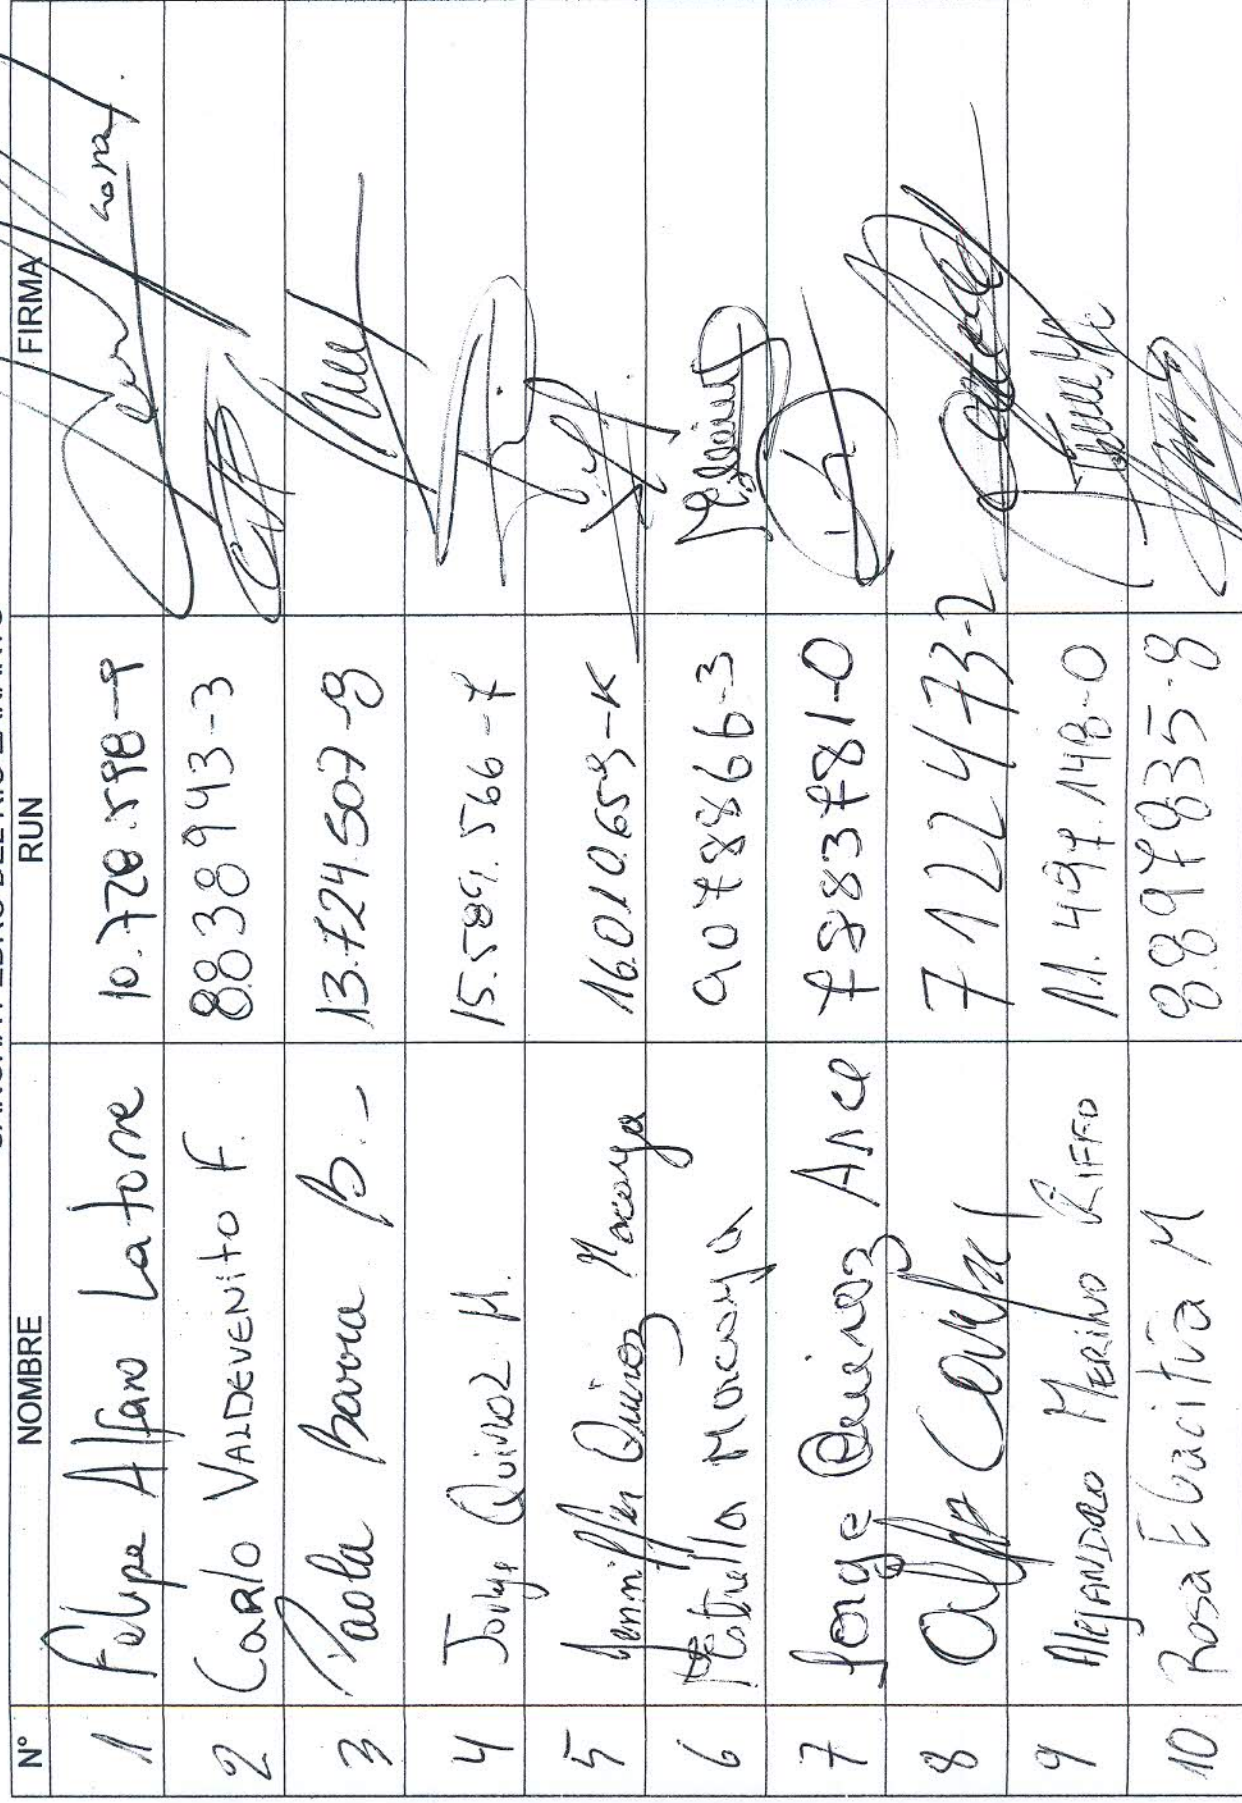 N° NOMBRE RUN FIRMA
1 Felipe Alfaro Latorre 10.728.598-9
2 Carlo VALDEVENito F. 8.838943-3
3 Paola Barra B.- 13.724.507-8
4 Jorge Quiroz M. 15.589.566-7
5 Jenniffer Quiroz Macaya 16.010.659-K
6 Estrella Macaya 9078866-3
7 Jorge Quiroz Arce 7883781-0
8 7122473-2
9 AlejANDRO MERINO RIFFO 11.497.148-0
10 Rosa M 8.897835-8